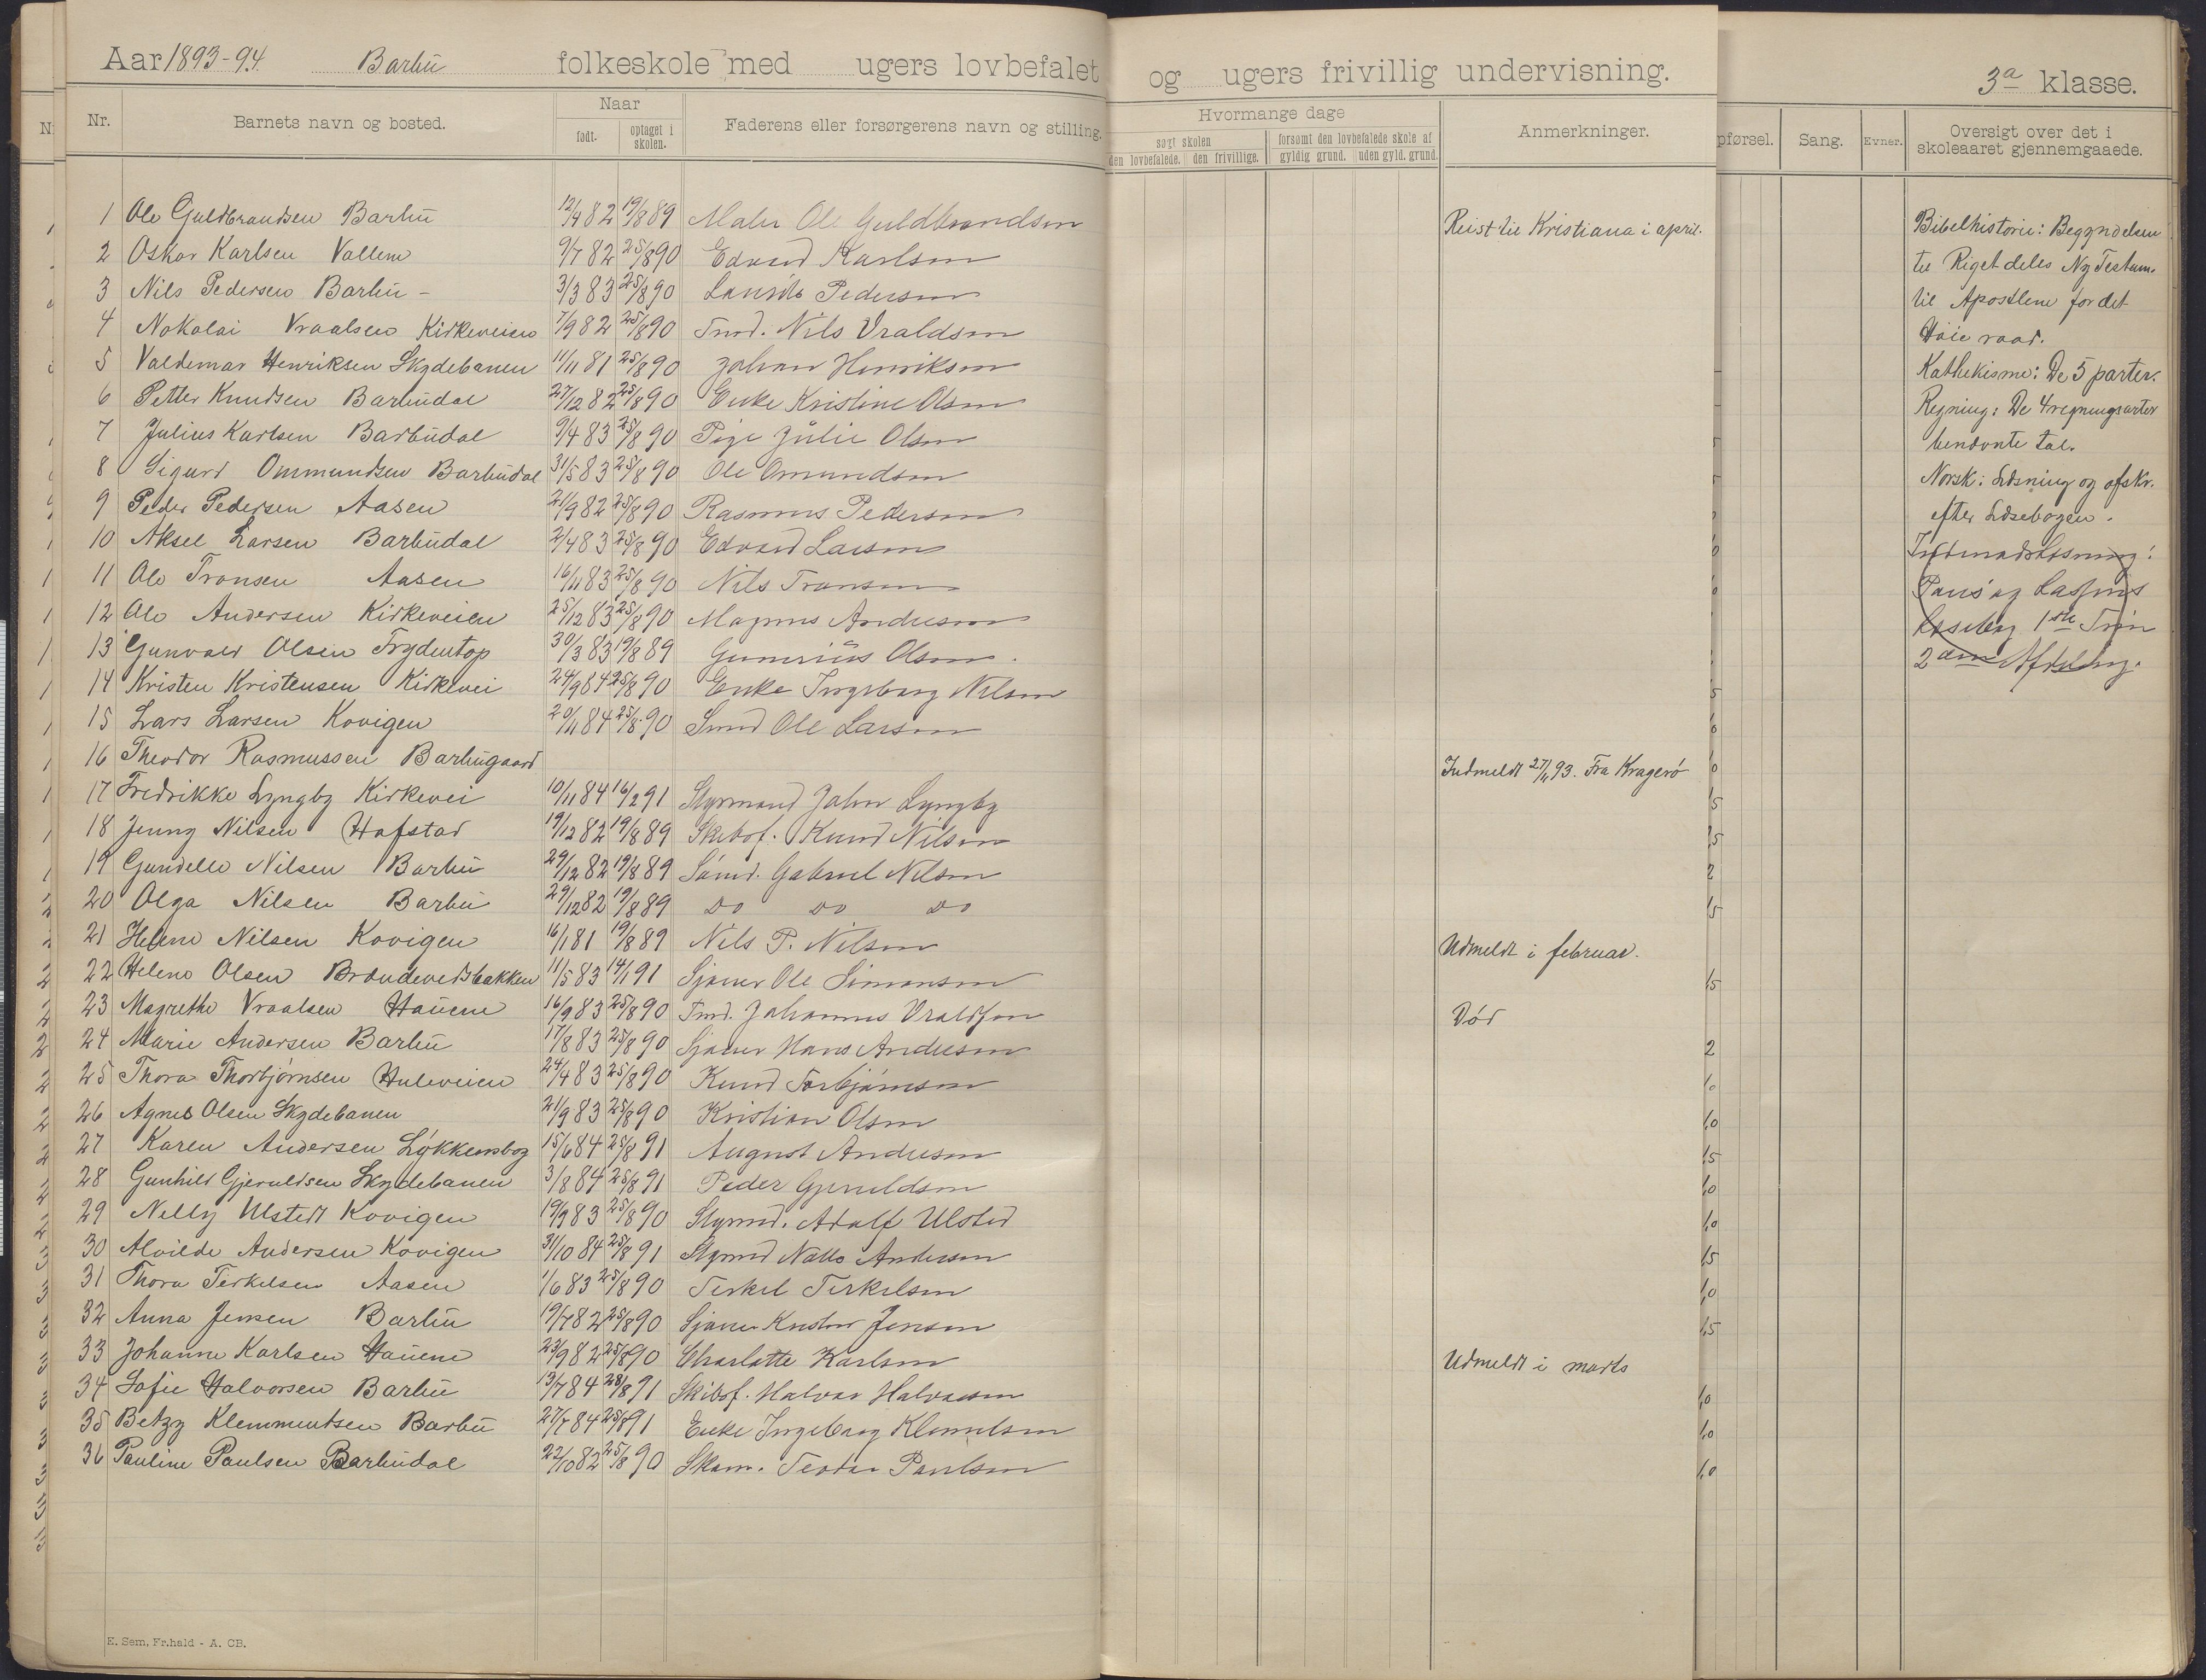 Aar 1893-94. Barbu folkeskole med ugers lovbefalet og ugers frivillig undervisning. 3a klasse.
Nr. Barnets navn og bosted. Naar født. optaget i skolen. Faderens eller forsørgerens navn og stilling. Hvormange dage søgt skolen den lovbefalede. den frivillige. forsømt den lovbefalede skole af gyldig grund. uden gyld. grund. Anmerkninger. pførsel. Sang. Evner. Oversigt over det i skoleaaret gjennemgaaede.
1 Ole Guldbrandsen Barbu 12/4 82 19/8 89 Maler Ole Guldbrandsen Reist til Kristiana i april.
2 Oskar Karlsen Vallem 9/7 82 25/8 90 Edvard Karlsen
3 Nils Pedersen Barbu - 3/3 83 25/8 90 Pedersen
4 Nokolai Vraalsen Kirkeveien 7/9 82 25/8 90 Tmd. Nils Vraldsen
5 Valdemar Henriksen Skydebanen 11/11 81 25/8 90 Johan Henriksen
6 Petter Knudsen Barbudal 27/12 82 25/8 90 Enke Kristine Olsen
7 Julius Karlsen Barbudal 9/4 83 25/8 90 Pige Julie Olsen
8 Sigurd Ommundsen Barbudal 31/5 83 25/8 90 Ole Omundsen
9 Peder Pedersen Aasen 21/9 82 25/8 90 Rasmus Pedersen
10 Aksel Larsen Barbudal 2/4 83 25/8 90 Edvard Larsen
11 Ole Tronsen Aasen 16/11 83 25/8 90 Nils Tronsen
12 Ole Andersen Kirkeveien 25/12 83 25/8 90 Magnus Andersen
13 Gunvald Olsen Frydentop 30/3 83 19/8 89 Gunerius Olsen.
14 Kristen Kristensen Kirkevei 24/9 84 25/8 90 Enke Ingeborg Nilsen
15 Lars Larsen Kovigen 20/11 84 25/8 90 Smed Ole Larsen
16 Theodor Rasmussen Barbugaard Indmeldt 27/11 93. Fra Kragerø
17 Fredrikke Lyngby Kirkevei 10/11 84 16/2 91 Styrmand John Lyngby
18 Jenny Nilsen Hafstad 19/12 82 19/8 89 Skibsf. Knud Nilsen
19 Gundelle Nilsen Barbu 29/12 82 19/8 89 Sømd. Gabriel Nilsen
20 Olga Nilsen Barbu 29/12 82 19/8 89 do do do
21 Helene Nilsen Kovigen 16/1 81 19/8 89 Nils P. Nilsen Udmeldt i februar.
22 Helene Olsen Brændevedsbakken 11/5 83 14/1 91 Sjøner Ole Simonsen
23 Magrethe Vraalsen Hauene 16/9 83 25/8 90 Tmd. Johannes Vraldsen Død
24 Marie Andersen Barbu 17/8 83 25/8 90 Sjøner Hans Andersen
25 Thora Thorbjørnsen Huleveien 24/4 83 25/8 90 Knud Torbjørnsen
26 Agnes Olsen Skydebanen 21/9 83 25/8 90 Kristian Olsen
27 Karen Andersen Løkkensbog 15/6 84 25/8 91 August Andersen
28 Gunhild Gjeruldsen Skydebanen 3/8 84 25/8 91 Peder Gjeruldsen
29 Nelly Ulstedt Kovigen 19/9 83 25/8 90 Styrmd. Adolf Ulsted
30 Alvilde Andersen Kovigen 31/10 84 25/8 91 Styrmd Andersen
31 Thora Terkelsen Aasen 1/6 83 25/8 90 Terkel Terkelsen
32 Anna Jensen Barbu 19/7 82 25/8 90 Sjøner Jensen
33 Johanne Karlsen Hauene 23/9 82 25/8 90 Charlotte Karlsen Udmeldt i marts
34 Sofie Halvorsen Barbu 13/7 84 28/8 91 Skibsf. Halvor Halvorsen
35 Betzy Klemmentsen Barbu 27/7 84 25/8 91 Enke Ingeborg Klemetsen
36 Pauline Paulsen Barbudal 22/10 82 25/8 90 Skom. Teodor Paulsen
Bibelhistorie: Begyndelsen
til Riget deles Ny Testam.
til Apostlene for det
Høie raad.
Kathekisme: De 5 parter.
Regning: De 4 regningsarter
benævnte tal.
Norsk: Læsning og afskr.
efter Læsebogen.
Indenadslæsning:
Pauss og Lassens
Læsebog 1ste Trin
2den Afdeling.
E. Sem, Fr.hald - A. CB.